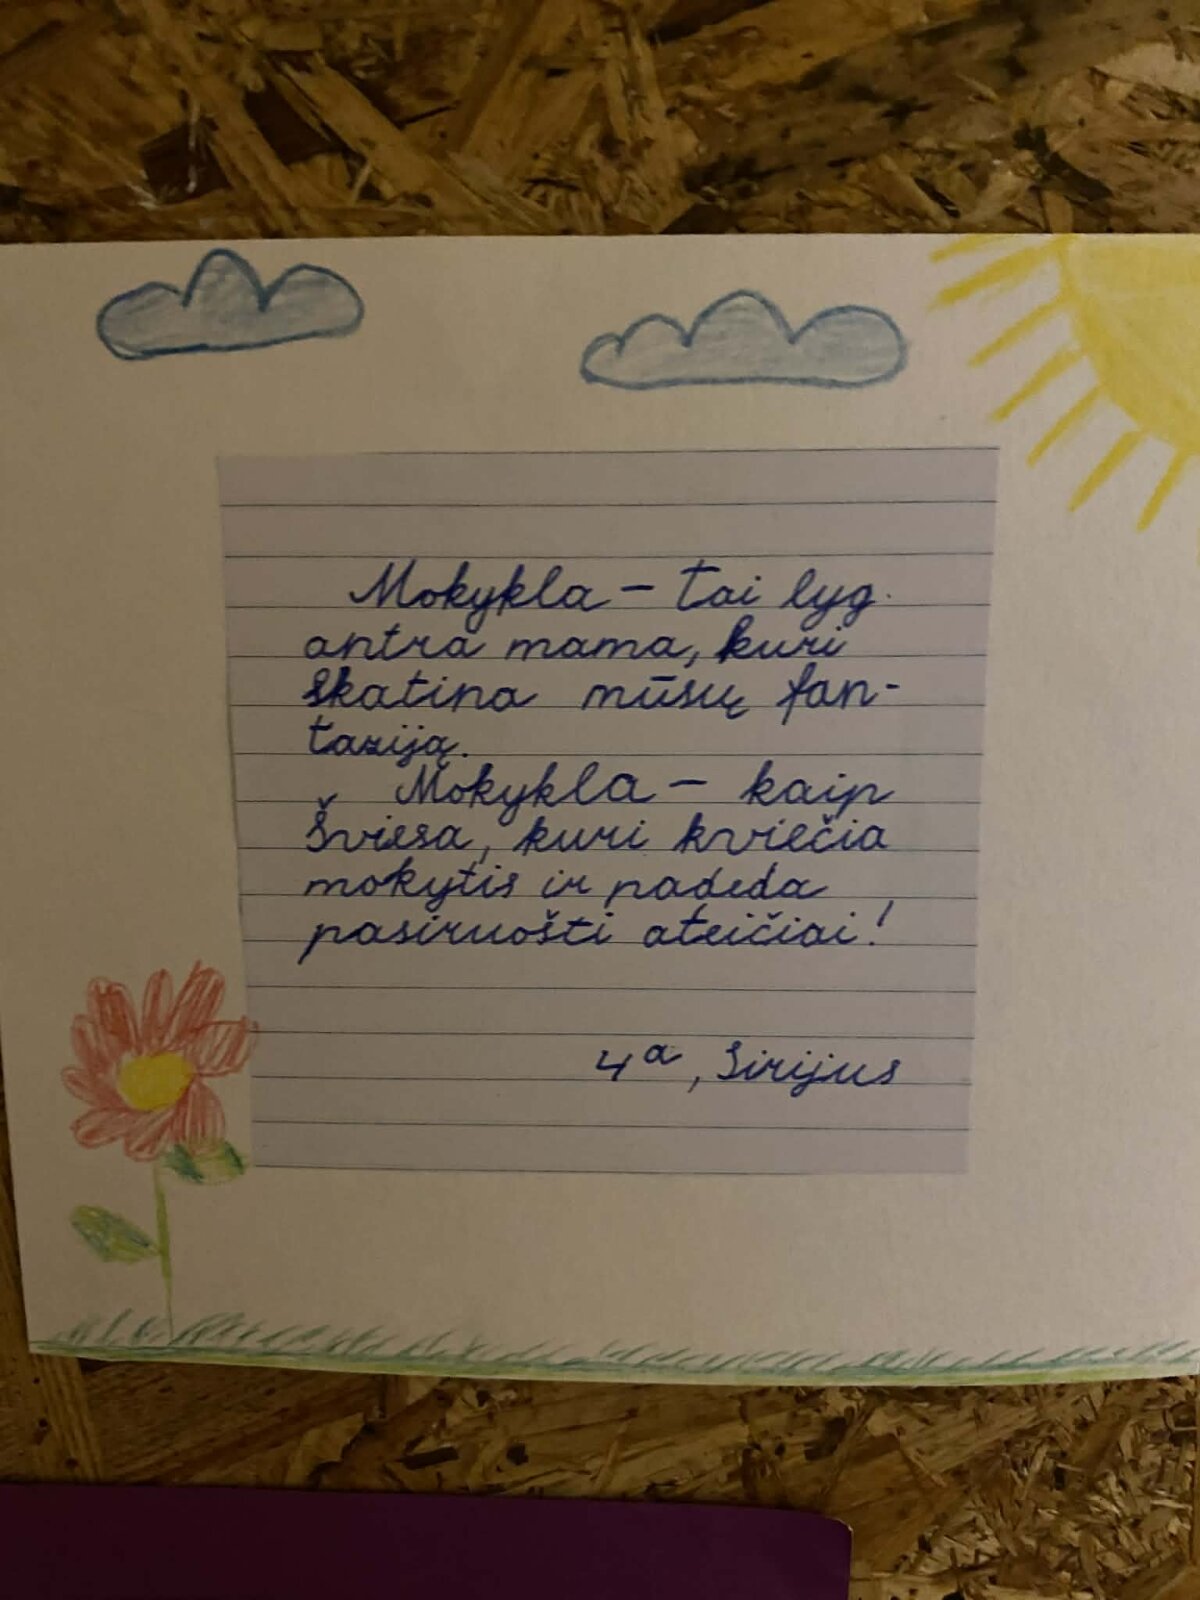 Mokykla – tai lyg
antra mama, kuri
skatina mūsų fan-
taziją.
Mokykla – kaip
šviesa, kuri kviečia
mokytis ir padeda
pasiruošti ateičiai!
4a, Sirijus